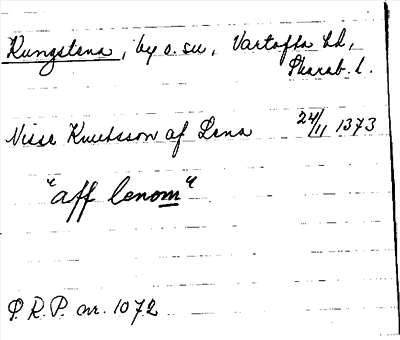 Kungslena, by o. sn, Vartofta hd,
Skarab. l.
Nisse Knutsson af Lena 24/11 1373
"aff lenom"
P.R.P. nr. 1072